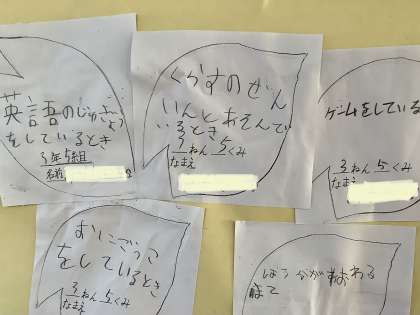 英語のじゅぎょう
をしているとき
3年5組
名前
くらすのぜん
いんとあそんで
いるとき
3ねん5くみ
なまえ
ゲームをしている
3ねん5くみ
なまえ
おにごっこ
をしているとき
3ねん5くみ
なまえ
まで